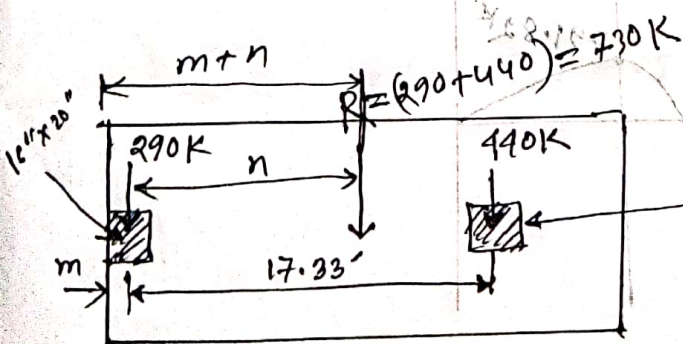 m+n
R=(290+440)=730K
290K
440K
n
m
17.33'